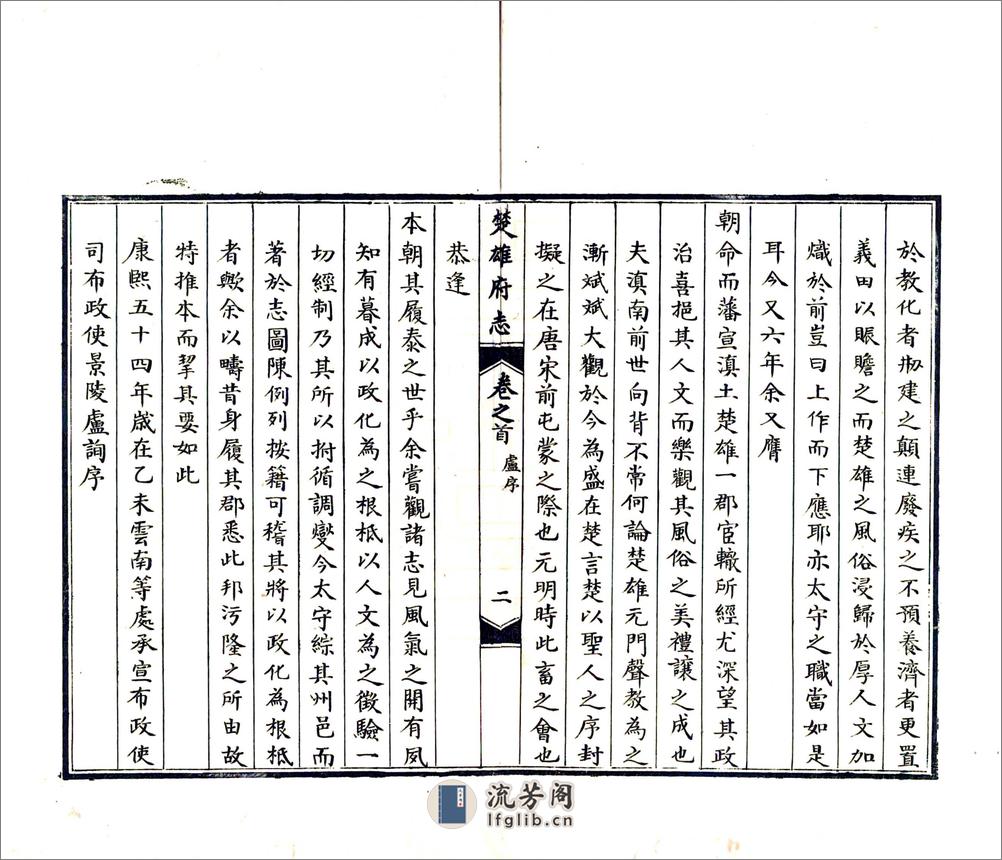 於教化者刱建之顛連廢疾之不預養濟者更置
義田以賑贍之而楚雄之風俗浸歸於厚人文加
熾於前豈曰上作而下應耶亦太守之職當如是
耳今又六年余又膺
朝命而藩宣滇土楚雄一郡宦轍所經尤深望其政
治喜挹其人文而樂觀其風俗之美禮讓之成也
夫滇南前世向背不常何論楚雄元門聲教為之
漸斌斌大觀於今為盛在楚言楚以聖人之序封
擬之在唐宋前屯蒙之際也元明時此畜之會也
楚雄府志
卷之首
盧序
二
恭逢
本朝其履泰之世乎余嘗觀諸志見風氣之開有夙
知有暮成以政化為之根柢以人文為之徵驗一
切經制乃其所以拊循調燮今太守綜其州邑而
著於志圖陳例列按籍可稽其將以政化為根柢
者歟余以疇昔身履其郡悉此邦污隆之所由故
特推本而挈其要如此
康熙五十四年歲在乙未雲南等處承宣布政使
司布政使景陵盧詢序
流芳阁
lfglib.cn